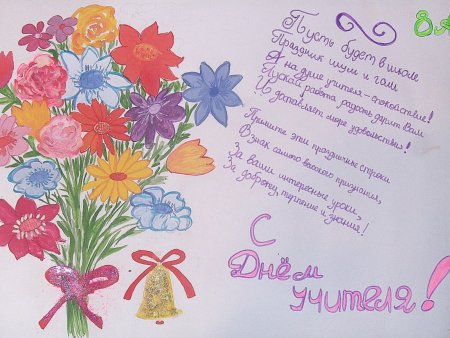 8 А
Пусть будет в школе
Праздник шум и гам
А на душе учителя - спокойствие!
Пускай работа радость дарит Вам
И доставляет море удовольствий!
Примите эти праздничные строки
В знак самого высокого признания,
За ваши интересные уроки,
За доброту, терпение и знания!
С
Днём
учителя!